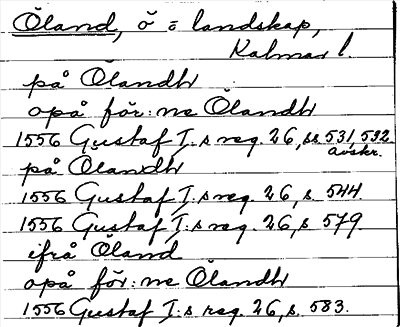 Öland, ö = landskap,
Kalmar l.
på Ölandh
opå för:ne Ölandh
1556 Gustaf I:s reg. 26, ss. 531, 532.
avskr.
på Ölandh
1556 Gustaf I:s reg. 26, s. 544.
1556 Gustaf I:s reg. 26, s. 579.
ifrå Öland
opå för:ne Ölandh
1556 Gustaf I:s reg. 26, s. 583.